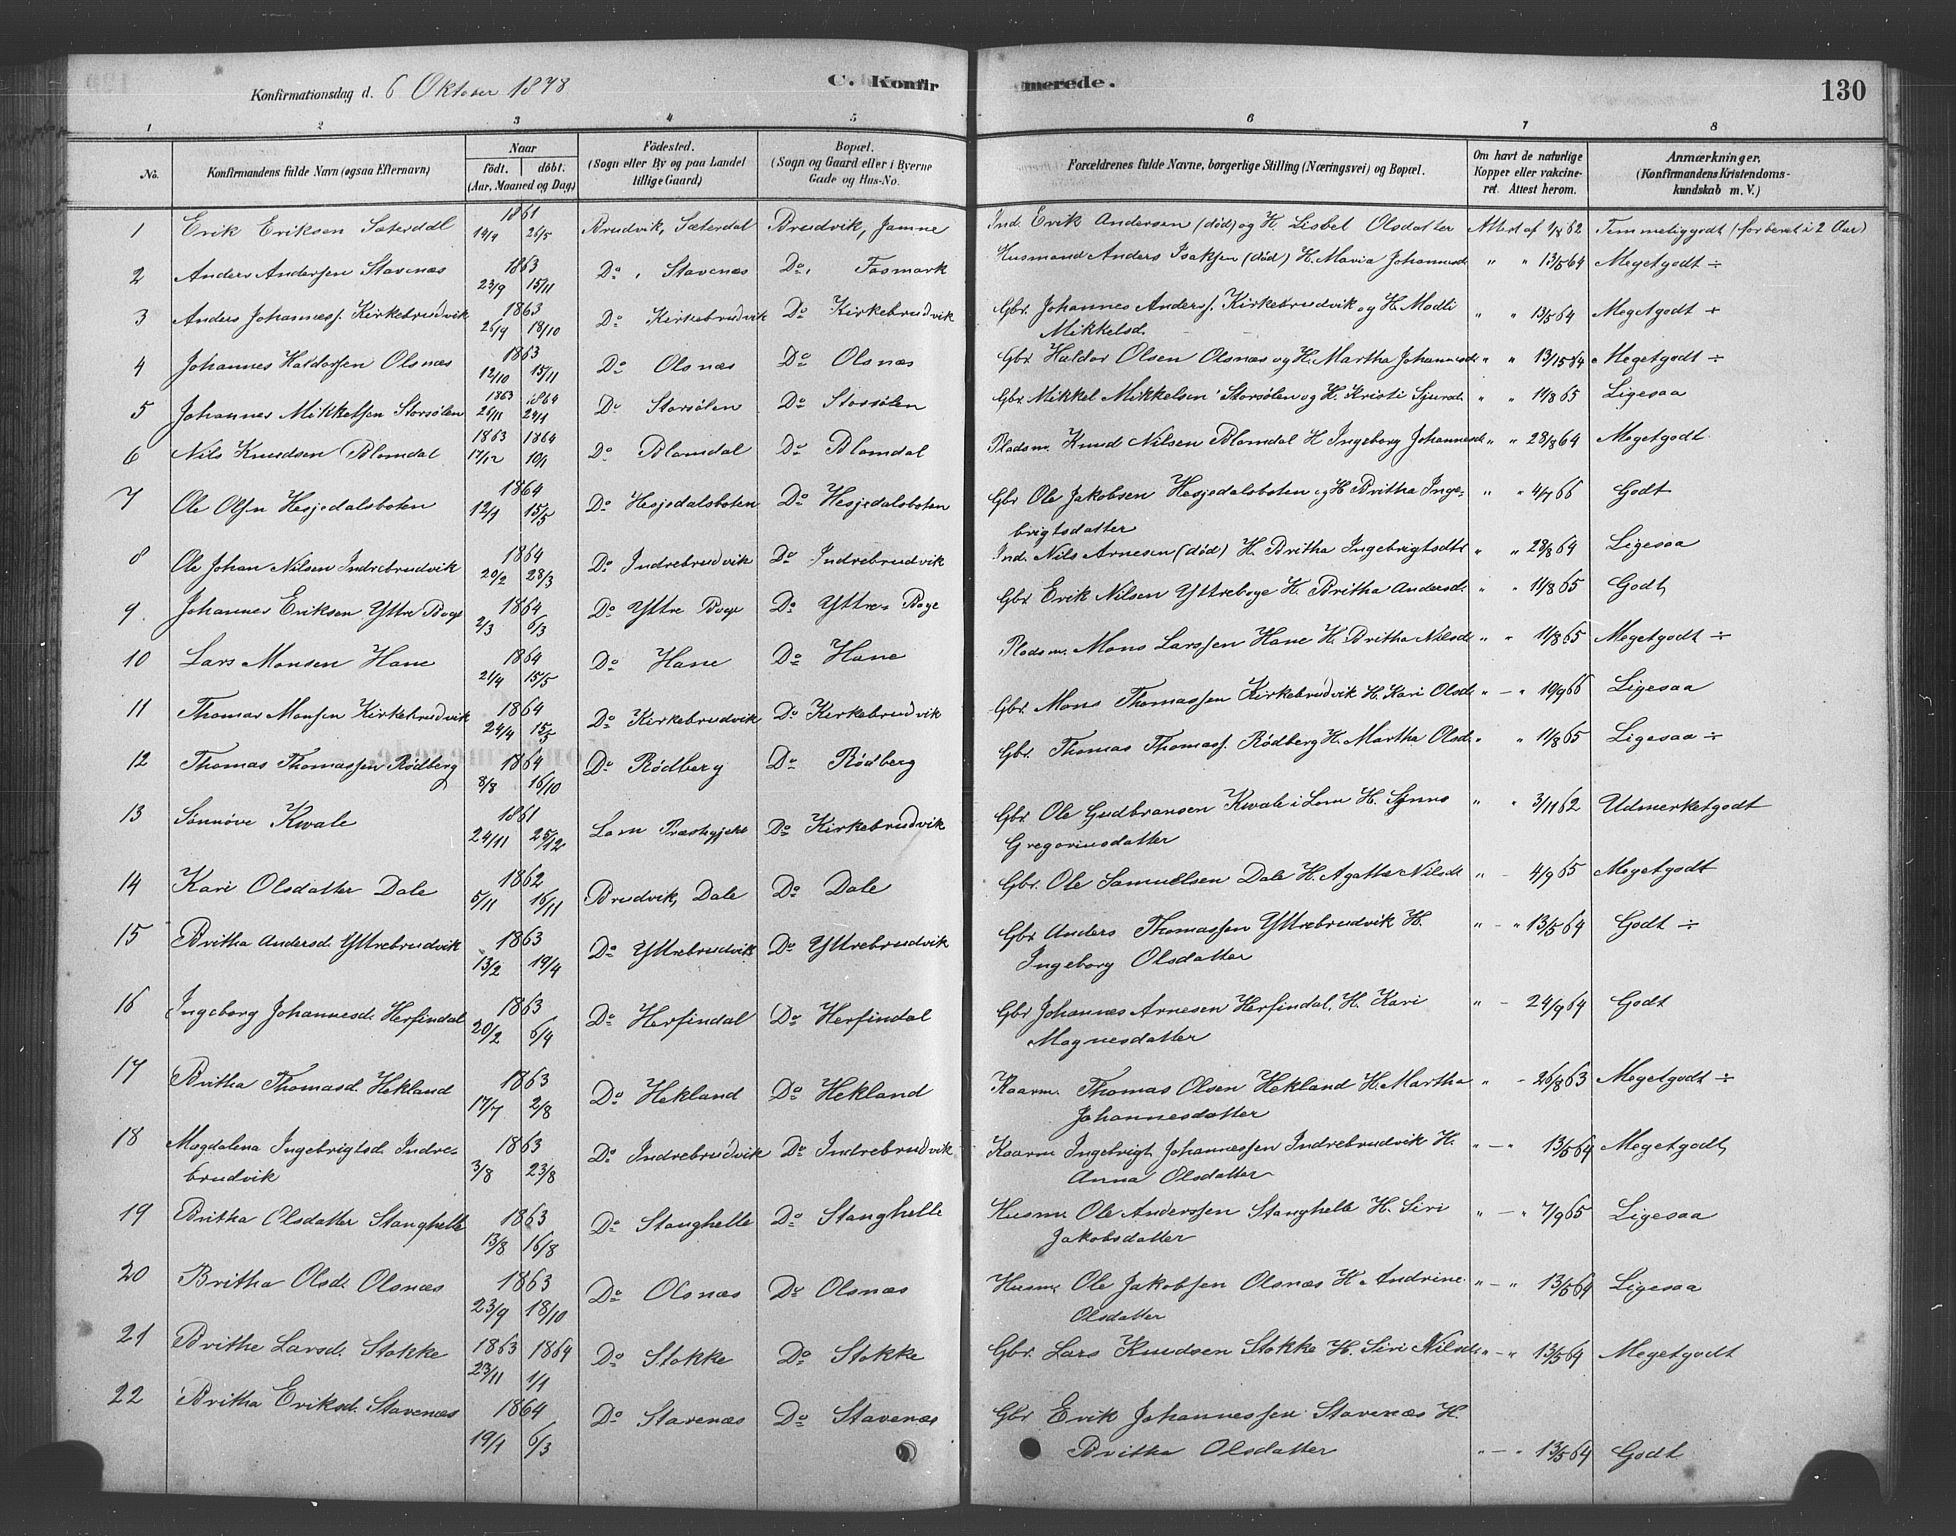 Konfirmationsdag d. 6 Oktober 1878
C. Konfirmerede.
130
1 2 3 4 5 6 7 8
No.
Konfirmandens fulde Navn (ogsaa Efternavn)
Naar
födt. döbt.
(Aar, Maaned og Dag)
Födested.
(Sogn eller By og paa Landet
tillige Gaard)
Bopæl.
(Sogn og Gaard eller i Byerne
Gade og Hus-No.
Forældrenes fulde Navne, borgerlige Stilling (Næringsvei) og Bopæl.
Om havt de naturlige
Kopper eller vakcine-
ret. Attest herom.
Anmærkninger.
(Konfirmandens Kristendoms-
kundskab m. V.)
1 Erik Eriksen Sæterdal 1861 14/4 26/5 Brudvik, Sæterdal Brudvik, Jamne Ind. Erik Andersen (död) og H. Lisbet Olsdatter Attest af 1/8 62 Temmeliggodt (forberet i 2 Aar)
2 Anders Andersen Stavenæs 1863 23/9 15/11 Do, Stavenæs Do, Fosmark Husmand Anders Isaksen (död) H. Maria Johannesd. " " 13/5 64 Megetgodt ÷
3 Anders Johannesf. Kirkebrudvik 1863 25/9 18/10 Do Kirkebrudvik Do Kirkebrudvik Gbr. Johannes Andersf. Kirkebrudvik og H. Madli
Mikkelsd. " " 13/5 64 Megetgodt ÷
4 Johannes Haldorsen Olsnæs 1863 12/10 15/11 Do Olsnæs Do Olsnæs Gbr. Haldor Olsen Olsnæs og H. Martha Johannesd. " " 13/5 64 Megetgodt ÷
5 Johannes Mikkelsen Storsölen 1863 1864 26/11 24/1 Do Storsölen Do Storsölen Gbr. Mikkel Mikkelsen Storsölen og H. Kristi Sjursd. " " 11/8 65 Ligesaa
6 Nils Knudsen Blomdal 1863 1864 17/12 10/1 Do Blomdal Do Blomdal Pladsm. Knud Nilsen Blomdal H Ingeborg Johannesd. " " 28/8 64 Megetgodt
7 Ole Olsen Hesjedalsboten 1864 12/1 15/5 Do Hesjedalsboten Do Hesjedalsboten Gbr Ole Jakobsen Hesjedalsboten og H Britha Inge-
brigtsdatter " " 4/7 66 Godt
8 Ole Johan Nilsen Indrebrudvik 1864 20/2 28/3 Do Indrebrudvik Do Indrebrudvik Ind. Nils Arnesen (död) H. Britha Ingebrigtsdt " " 28/8 64 Ligesaa
9. Johannes Eriksen Yttre Boge 1864 2/3 6/3 Do Yttre Boge Do Yttre Boge Gbr. Erik Nilsen Yttreboge H. Britha Andersd. " " 11/8 65 Godt
10 Lars Monsen Hane 1864 21/4 15/5 Do Hane Do Hane Pladsm. Mons Larssen Hane H. Britha Nilsd. " " 11/8 65 Megetgodt ÷
11 Thomas Monsen Kirkebrudvik 1864 24/4 15/5 Do Kirkebrudvik Do Kirkebrudvik Gbr. Mons Thomassen Kirkebrudvik H. Kari Olsd. " – " 19/9 66 Ligesaa
12 Thomas Thomassen Rödberg 1864 8/8 16/10 Do Rödberg Do Rödberg Gbr. Thomas Thomasf. Rödberg H. Martha Olsd. " " 11/8 65 Ligesaa ÷
13 Sönnöve Kvale 1861 24/11 25/12 Lom Præstegjeld Do Kirkebrudvik Gbr. Ole Gudbransen Kvale i Lom H. Synnö
Gregoriusdatter " " 3/11 62 Udmerketgodt
14 Kari Olsdatter Dale 1862 5/11 16/11 Brudvik, Dale Do Dale Gbr. Ole Samuelsen Dale H. Agatha Nilsd. " – 4/9 65 Megetgodt
15 Britha Andersd. Yttrebrudvik 1863 13/2 19/4 Do Yttrebrudvik Do Yttrebrudvik Gbr Anders Thomassen Yttrebrudvik H.
Ingeborg Olsdatter " – " 13/5 64 Godt ÷
16 Ingeborg Johannesd. Herfindal 1863 20/2 6/4 Do Herfindal Do Herfindal Gbr Johannes Arnesen Herfindal, H. Kari
Magnesdatter " – 24/9 64 Godt
17 Britha Thomasd. Hekland 1863 17/7 2/8 Do Hekland Do Hekland Kaarm. Thomas Olsen Hekland H. Martha
Johannesdatter " – 26/8 63 Megetgodt ÷
18 Magdalena Ingebrigtsd. Indre-
brudvik 1863 3/8 23/8 Do Indrebrudvik Do Indrebrudvik Kaarm Ingebrigt Johannessen Indrebrudvik H.
Anna Olsdatter " – " 13/5 64 Megetgodt
19 Britha Olsdatter Stanghelle 1863 13/8 16/8 Do Stanghelle Do Stanghelle Husm. Ole Anderssen Stanghelle H. Siri
Jakobsdatter " – " 7/9 65 Ligesaa
20 Britha Olsd. Olsnæs 1863 23/9 18/10 Do Olsnæs Do Olsnæs Husm. Ole Jakobsen Olsnæs H. Andrine
Olsdatter " – " 13/5 64 Ligesaa
21 Brithe Larsd. Stokke 1863 1864 23/11 1/1 Do Stokke Do Stokke Gbr. Lars Knudsen Stokke H. Siri Nilsd. " – " 13/5 64 Megetgodt
22 Britha Eriksd. Stavenæs 1864 19/1 6/3 Do Stavenæs Do Stavenæs Gbr Erik Johannessen Stavenæs H.
Britha Olsdatter " – " 13/5 64 Godt